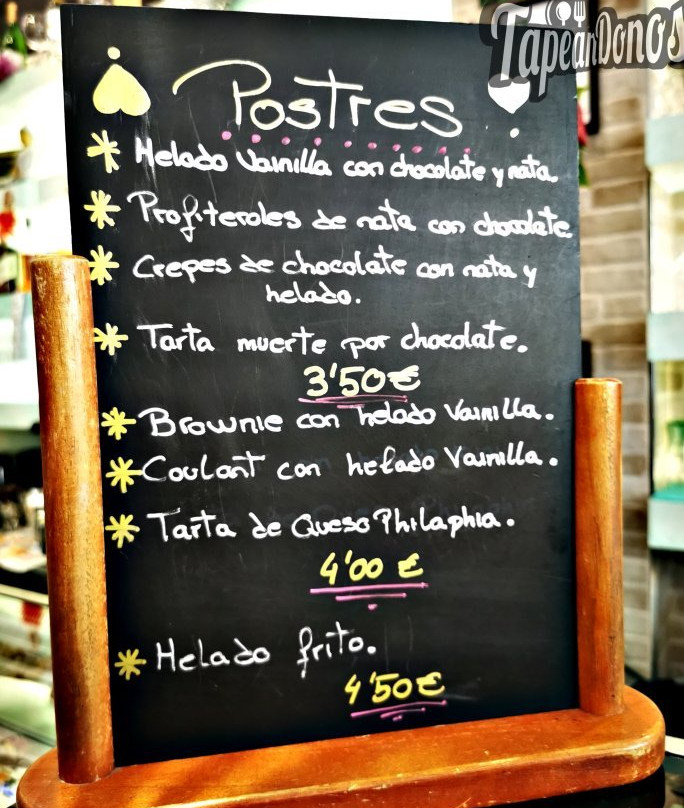 TapeanDono's
Postres
* Helado Vainilla con chocolate y nata.
* Profiteroles de nata con chocolate.
* Crepes de chocolate con nata y
helado.
* Tarta muerte por chocolate.
3'50€
* Brownie con helado Vainilla.
* Coulant con helado Vainilla.
* Tarta de Queso Philaphia.
4'00 €
* Helado frito.
4'50€